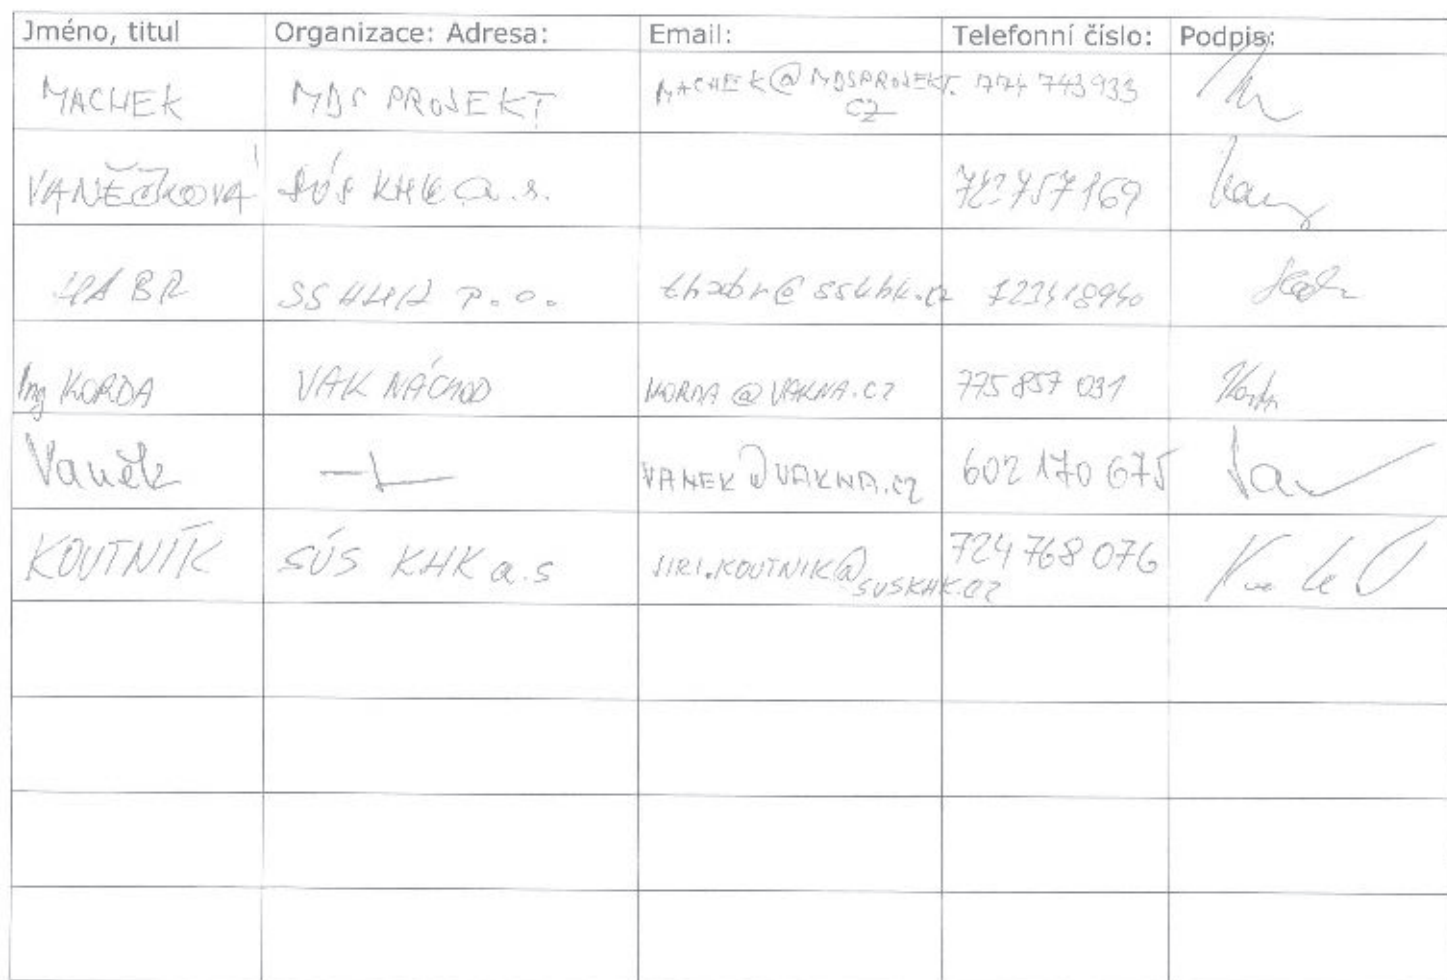 Jméno, titul Organizace: Adresa: Email: Telefonní číslo: Podpis:
MACHEK MDS PROJEKT MACHEK@MDSPROJEKT. 774 743 933
CZ
VANĚČKOVÁ SÚS KHK a.s.
HABR SS KHK p.o. thabr@sskhk.cz
Ing KORDA VAK NÁCHOD KORDA@VAKNA.CZ 775 857 031
Vaněk VANEK@VAKNA.CZ 602 170 675
KOUTNÍK SÚS KHK a.s JIRI.KOUTNIK@ 724 768 076
SUSKHK.CZ